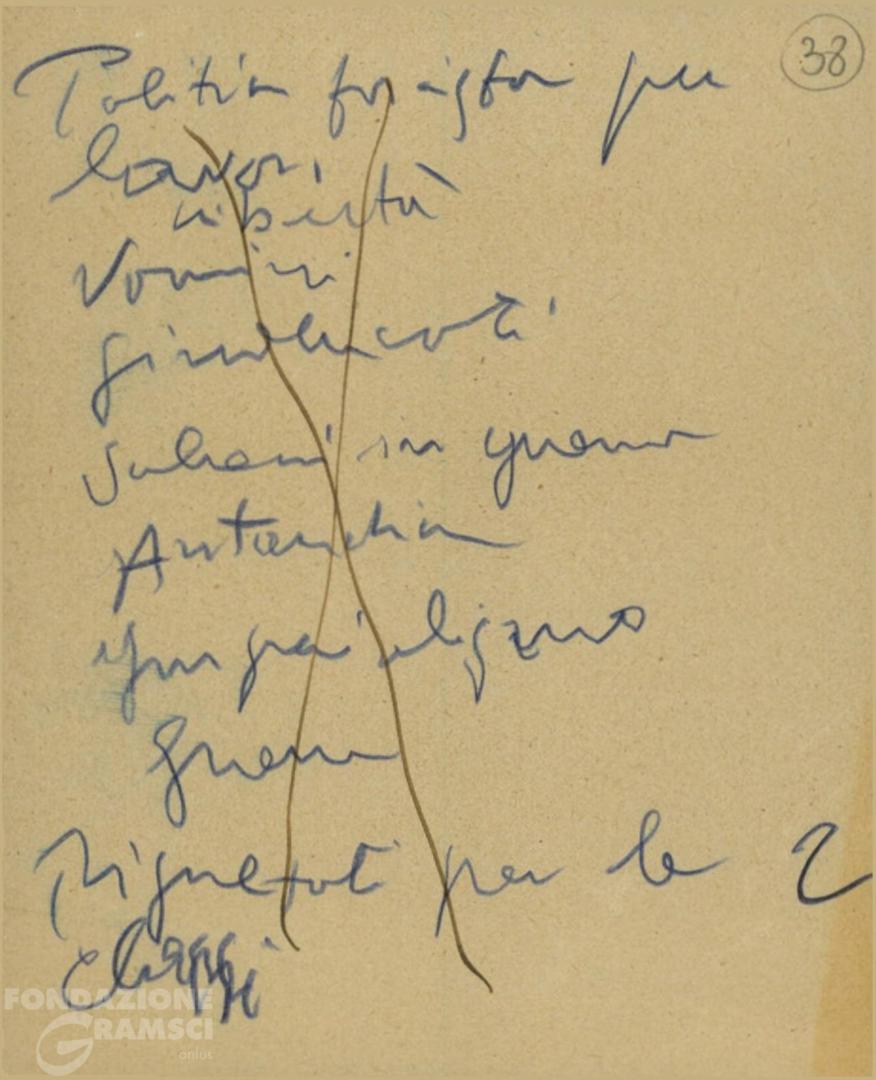 38
Politica fascista per
lavori
libertà
Uomini
Sindacati
Salari in guerra
Autarchia
Imperialismo
Guerra
Risultati per le 2
classi
FONDAZIONE
GRAMSCI
onlus